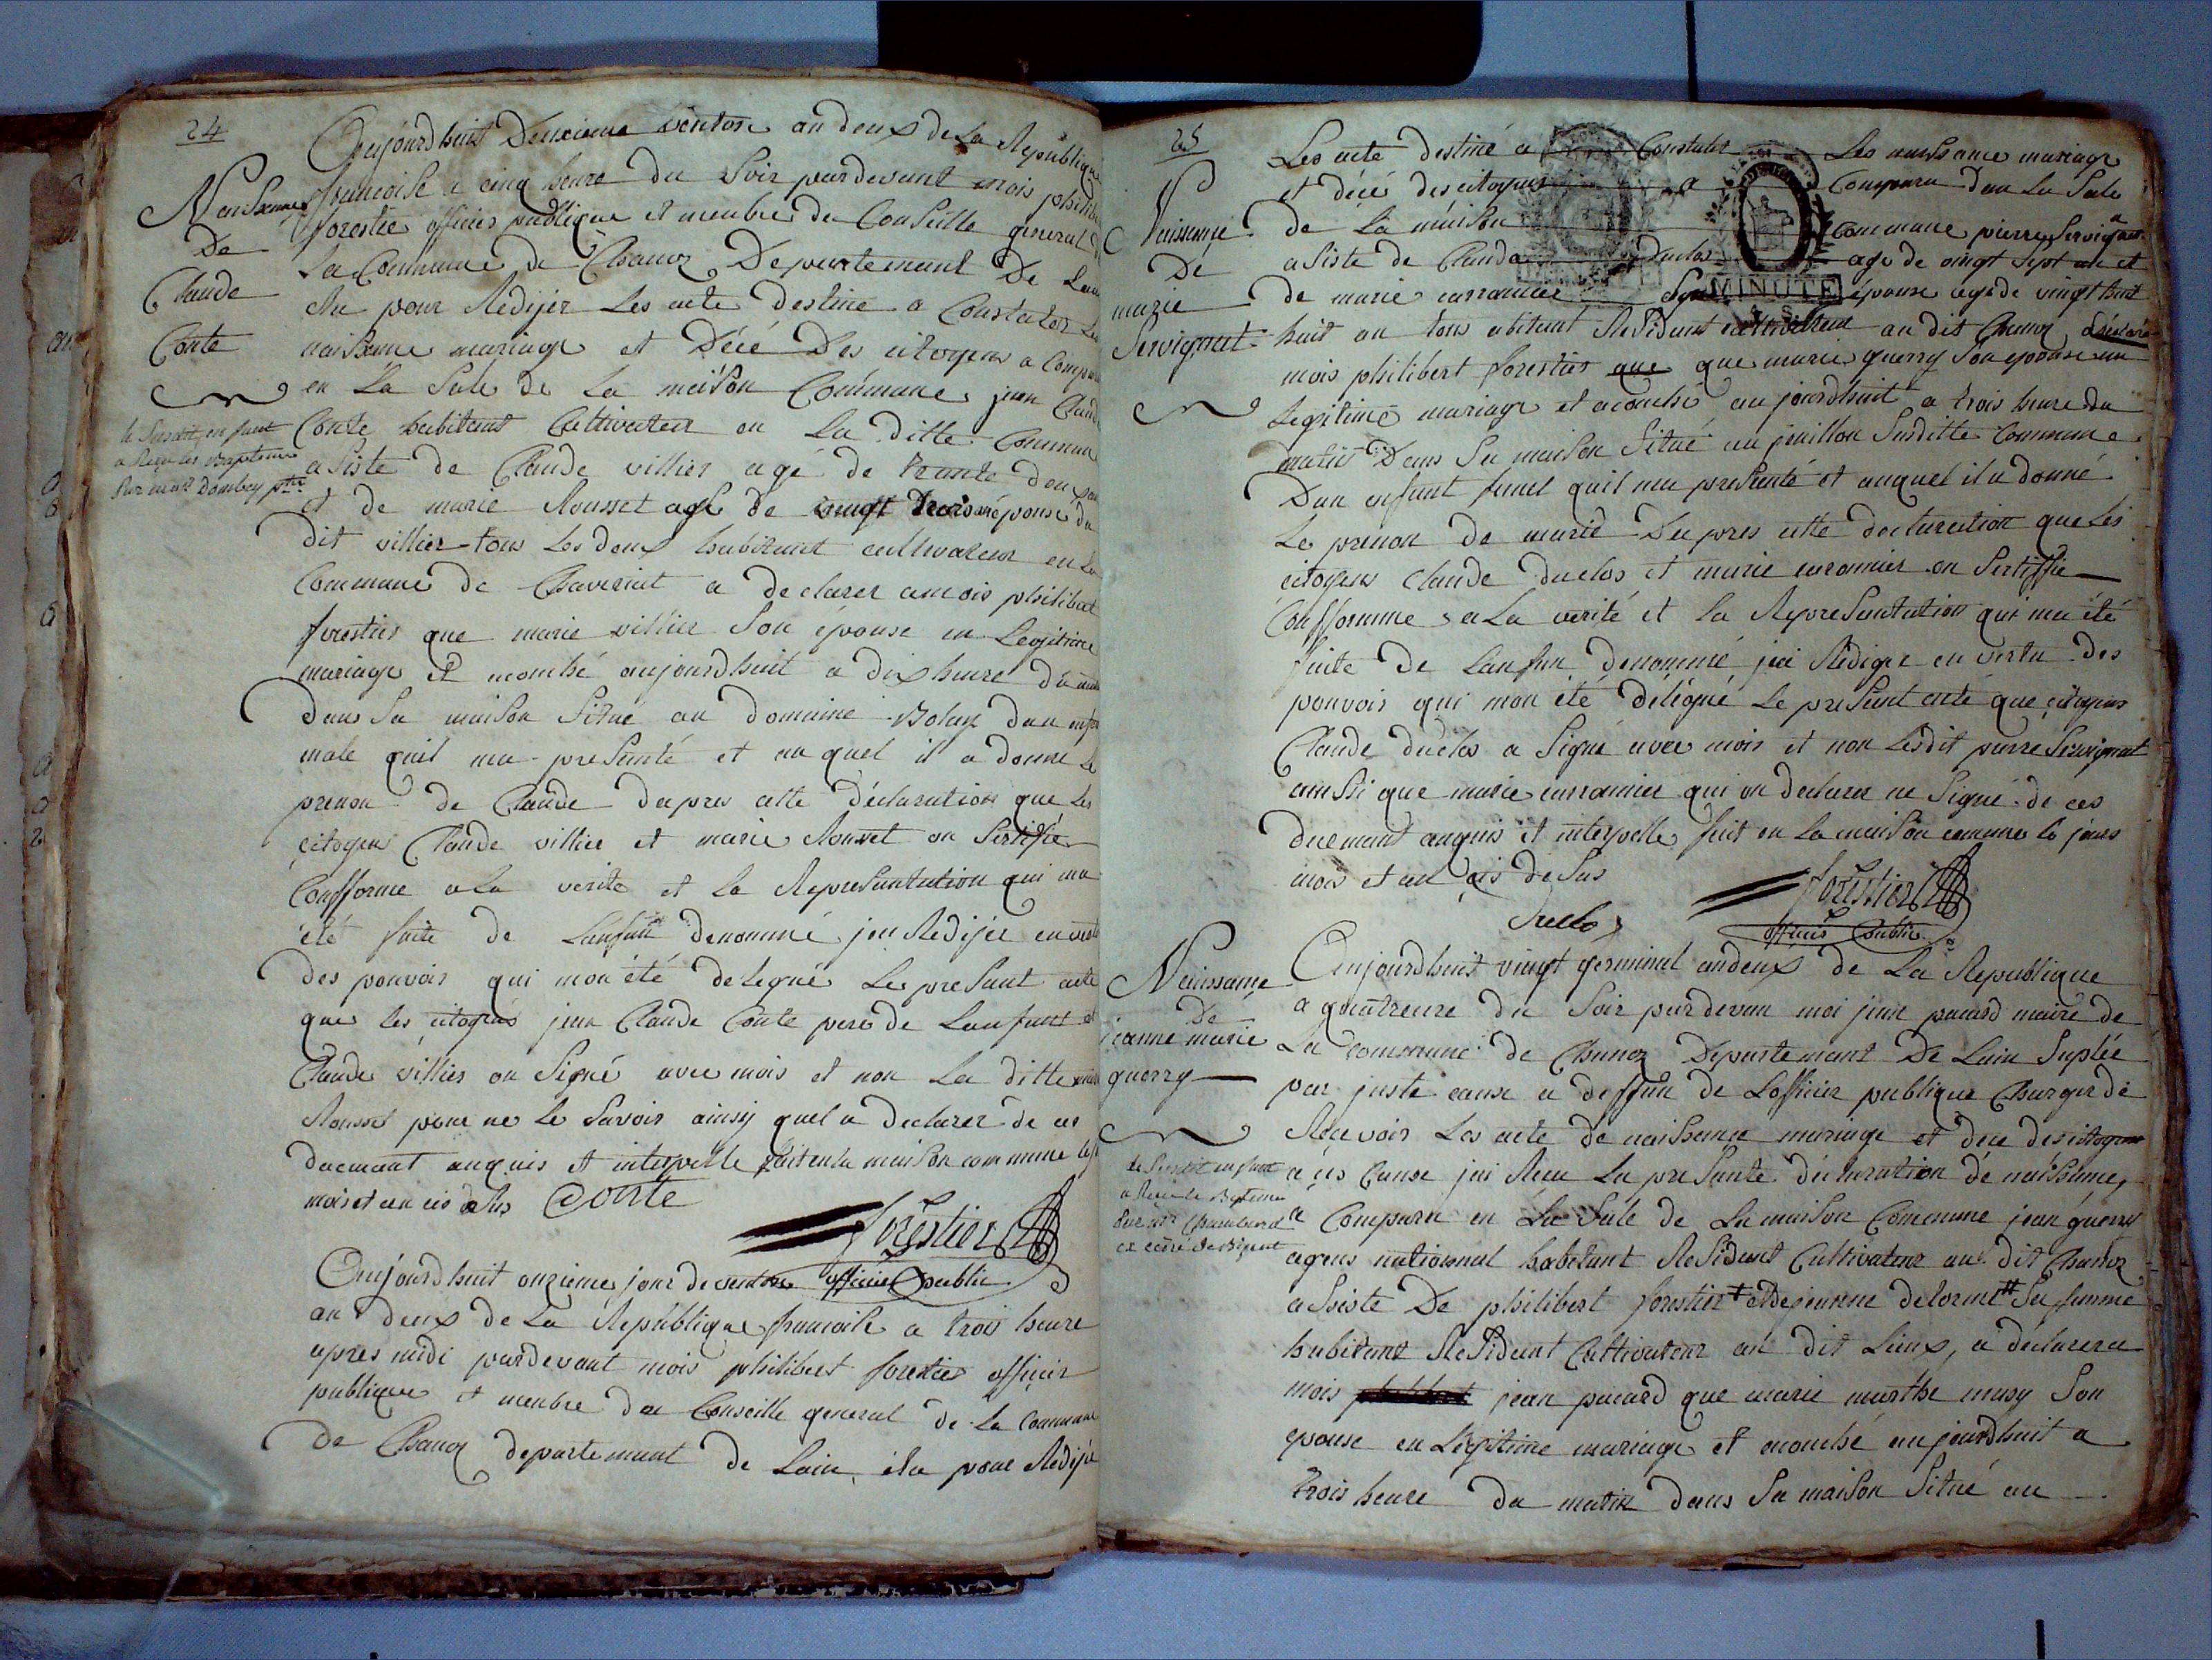 24
Aujourdhuit Deuxieme ventose an deux de La Republique
francoise a cinq heure du Soir pardevant mois philib
forestier officier publique et menbre du Conseille general d
La Commune de Chanoz Departement De Lain
elu pour Redijer Les acte destine a Constater Les
naissance mariage et Décé Des citoyens a Compar
en La Sale de La maison Commune jean Claud
Conte habitant Cultivateur en La ditte Commune
asiste de Claude villier agé de trante deux an
et de marie Rousset agé de vingt trois an épouse du
dit villier tous Les deux habitant cultivateur en La
Commune de Chaveriat a declarer a mois philibert
forestier que marie villier Son épouse en Legitime
mariage et acouché aujourdhuit a dix heure du matin
dans Sa maison Situé au domaine Dun enfan
male quil ma presanté et auquel il a donné Le
prenon de Claude dapres cette declaration que Les
citoyen Claude villier et marie Rousset on Sertifié
Confforme a La verite et La Represantation qui ma
été faite de Lanfant denommé jeai Redijér en vertu
des pouvoir qui mon été delegué Le presant acte
que Les citoyens jean Claude Conte pere de Lanfant et
Claude villier on Signé avec mois et non La ditte marie
Rousset pour ne Le Savoir ainsy quel a declarer de ce
duement anquis et interpelle fait en La maison commune Les
mois et an cis desus Conte
Forestier
officier public
Naissance
De
Claude
Conte
le Susdit enfant
a Reçu les Bapteme
par mr Dombey ptre
Aujourdhuit onzieme jour de ventose
an deux de La Republique francoise a trois heure
apres midi pardevant mois philibert forestier officier
publique et menbre du Conseille general de La Commune
de Chanoz departement de Lain élu pour Redijér
25
Les acte destiné a Constater Les naissance mariage
et décé des citoyens a Comparu dan La Sale
de La maison Commune pierre Servignat
asiste de Claude Duclos age de vingt Sept an et
de marie carronnier épouse agé de vingt huit
huit an tous abitant Residant cultivateur au dit Chanoz a déclaré
mois philibert forestier que que marie guerry Son epouse en
Legitime mariage et acouché aujourdhuit a trois heure du
matin Dans Sa maison Situé au Susditte Commune
Dun enfant femel quil ma presanté et auquel il a donné
Le prenon de marie Dapres cette declaration que Les
citoyens Claude duclos et marie caronnier on Sertiffié
Confforme a La verité et La Represantation qui ma été
faite de Lanfan denommé jeai Rediger en vertu des
pouvoir qui mon été délégué Le presant acte que citoyens
Claude duclos a Signé avec mois et non Ledit pierre Servignat
ainssi que marie carronnier qui on declarer ne Signé de ces
duement anquis et interpelle fait en La maison commune Le jours
mois et an cis desus
Duclos
Forestier
officier public
Naissance
De
marie
Servignat
Aujourdhuit vingt germinal an deux de La Republique
a quatreure du Soir pardevan moi jean pacard maire de
La commune de Chanoz Departemant De Lain Supléé
par juste cause a deffan de Lofficier publique Charger de
Recevoir Les acte de naissance mariage et dece des citoyens
a ces Cause jai Recu La presante declaration de naissance,
a Comparu en La Sale de La maison Commune jean guerry
agens nationnal habitant Residant Cultivateur au dit Chanoz
assiste De philibert forestier et de jeanne delorme Sa femme
habitant Residant Cultivateur au dit Lieux, a déclarer a
mois jean pacard que marie marthe musy Son
epouse en Legitime mariage et acouché aujourdhuit a
trois heure du matin dans Sa maison Situé au
Naissance
De
jeanne marie
guerry
le Susdit enfant
a Recu le Bapteme
par mr Chambard
MINUTE